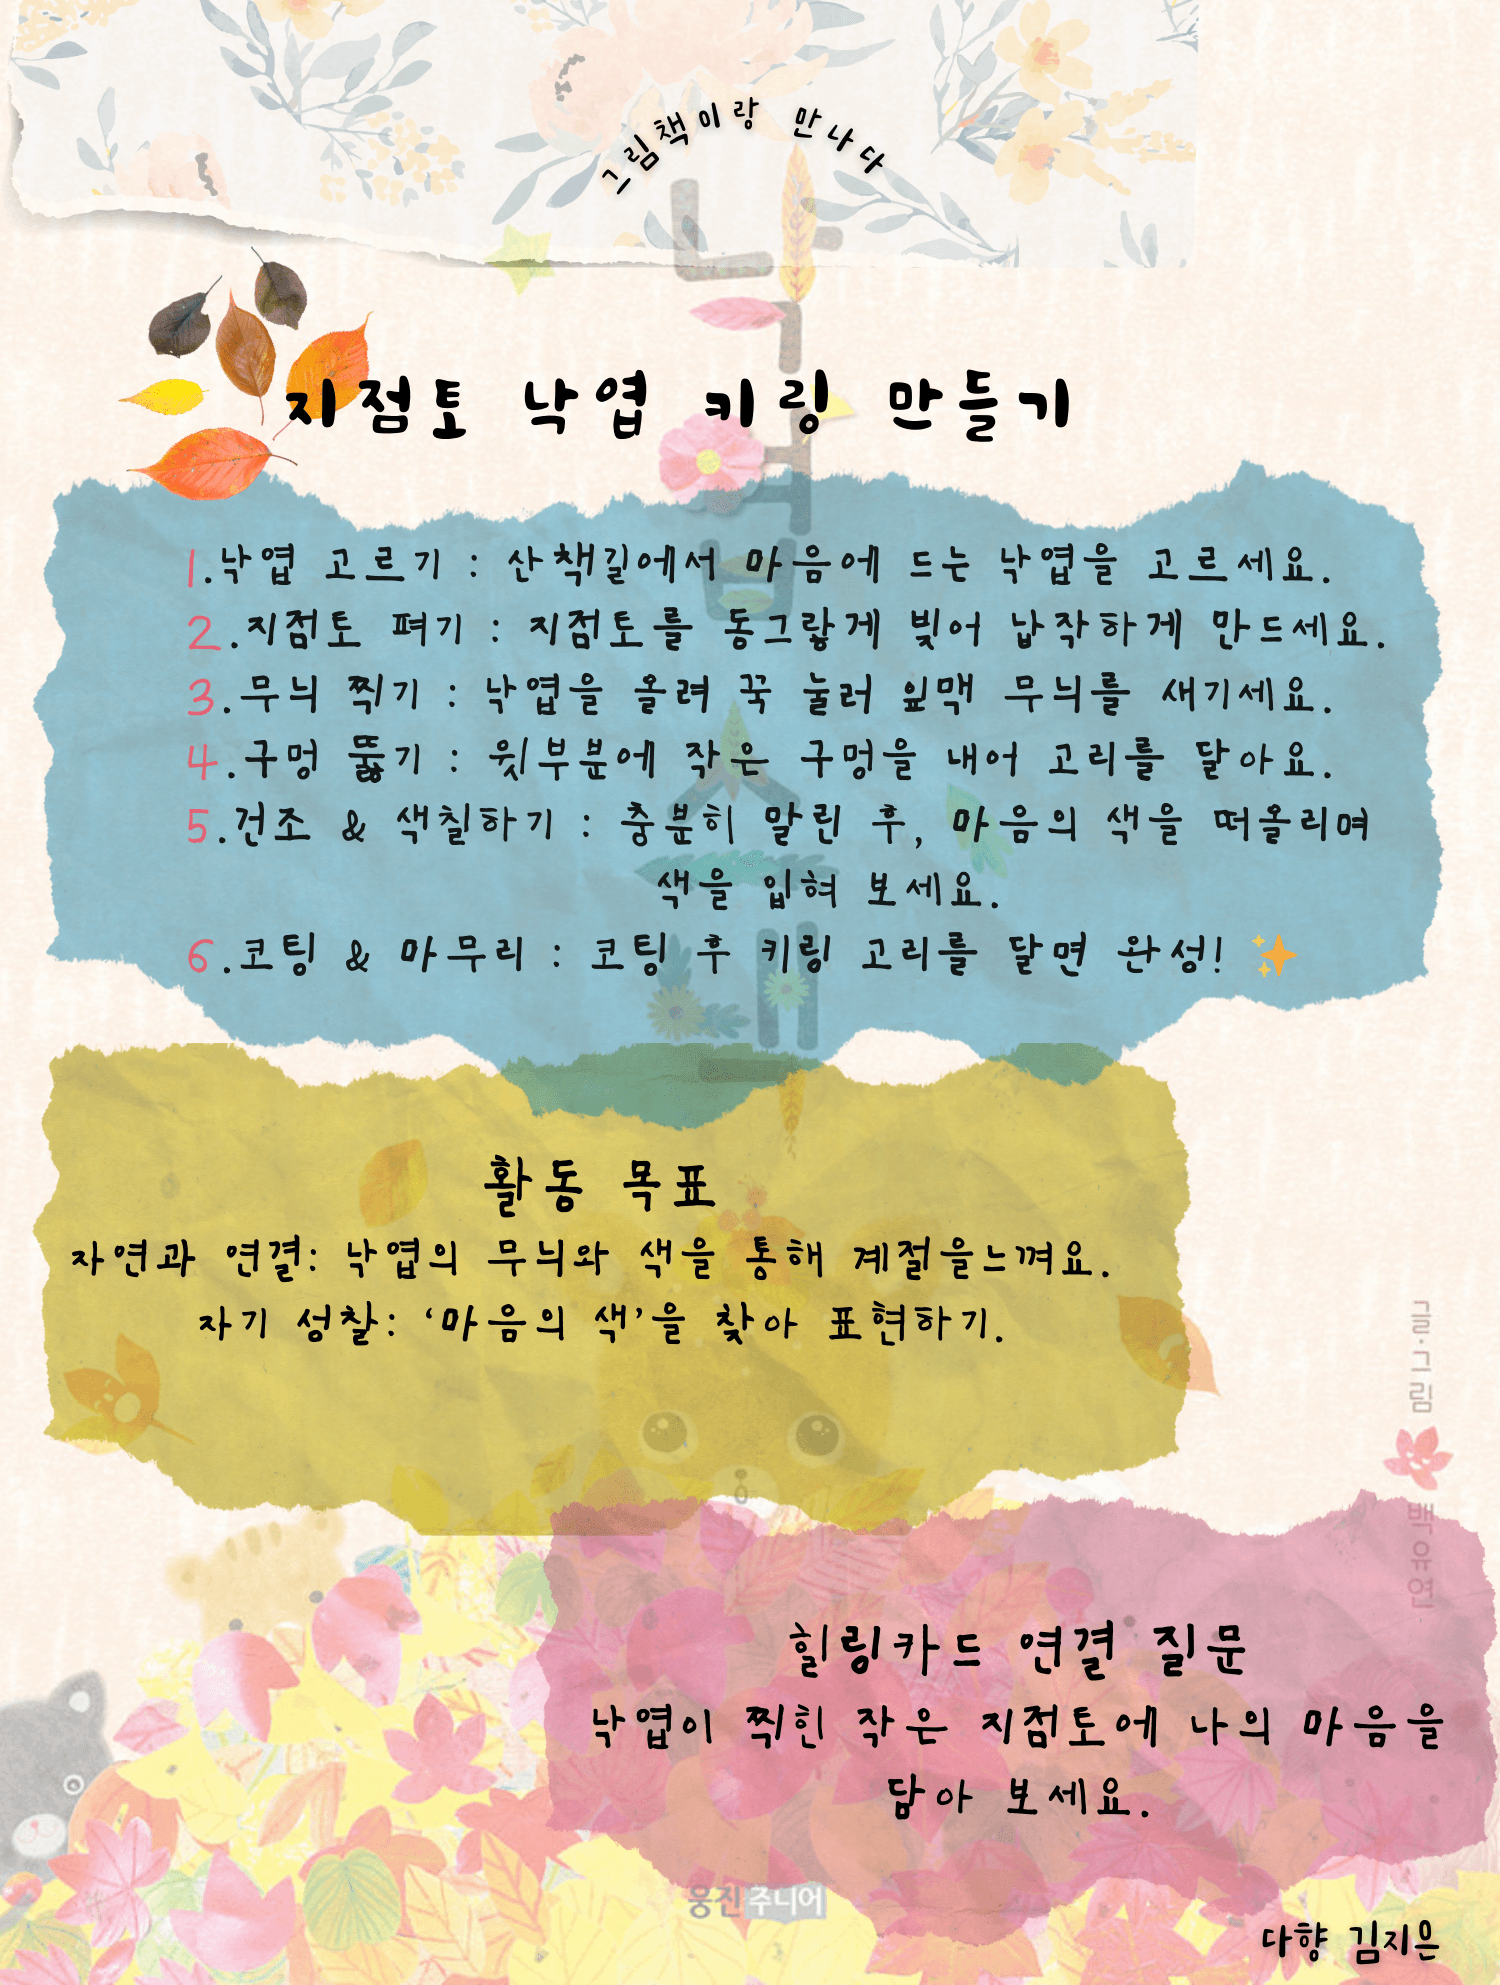 그림책이랑 만나다
지점토 낙엽 키링 만들기
1.낙엽 고르기 : 산책길에서 마음에 드는 낙엽을 고르세요.
2.지점토 펴기 : 지점토를 동그랗게 빚어 납작하게 만드세요.
3.무늬 찍기 : 낙엽을 올려 꾹 눌러 잎맥 무늬를 새기세요.
4.구멍 뚫기 : 윗부분에 작은 구멍을 내어 고리를 달아요.
5.건조 & 색칠하기 : 충분히 말린 후, 마음의 색을 떠올리며
색을 입혀 보세요.
6.코팅 & 마무리 : 코팅 후 키링 고리를 달면 완성! ✨
활동 목표
자연과 연결: 낙엽의 무늬와 색을 통해 계절을느껴요.
자기 성찰: ‘마음의 색’을 찾아 표현하기.
글·그림 백유연
힐링카드 연결 질문
낙엽이 찍힌 작은 지점토에 나의 마음을
담아 보세요.
웅진주니어
다향 김지은